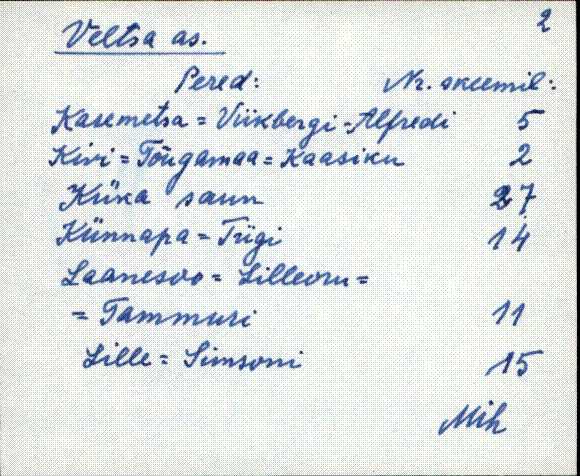 2
Veltsa as.
Pered: Nr. skeemil:
Kasemetsa = Viikbergi - Alfredi 5
Kivi = Tõugamaa = Kaasiku 2
Küka saun 27
Künnapa = Triigi 14
Laanesoo = Lilleoru =
= Tammuri 11
Lille = Simsoni 15
Mih